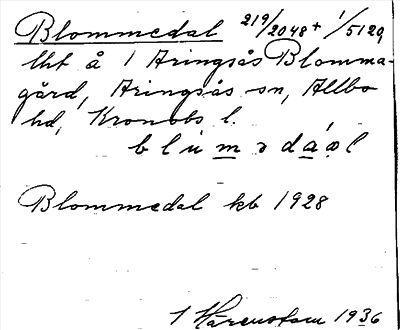 Blommedal 219/2048 + 1/5120,
lht å 1 Aringsås Blomma-
gård, Aringsås sn, Allbo
hd, Kronobs l.
blùmədá͟l
Blommedal kb 1928
1 Härenstam 1936